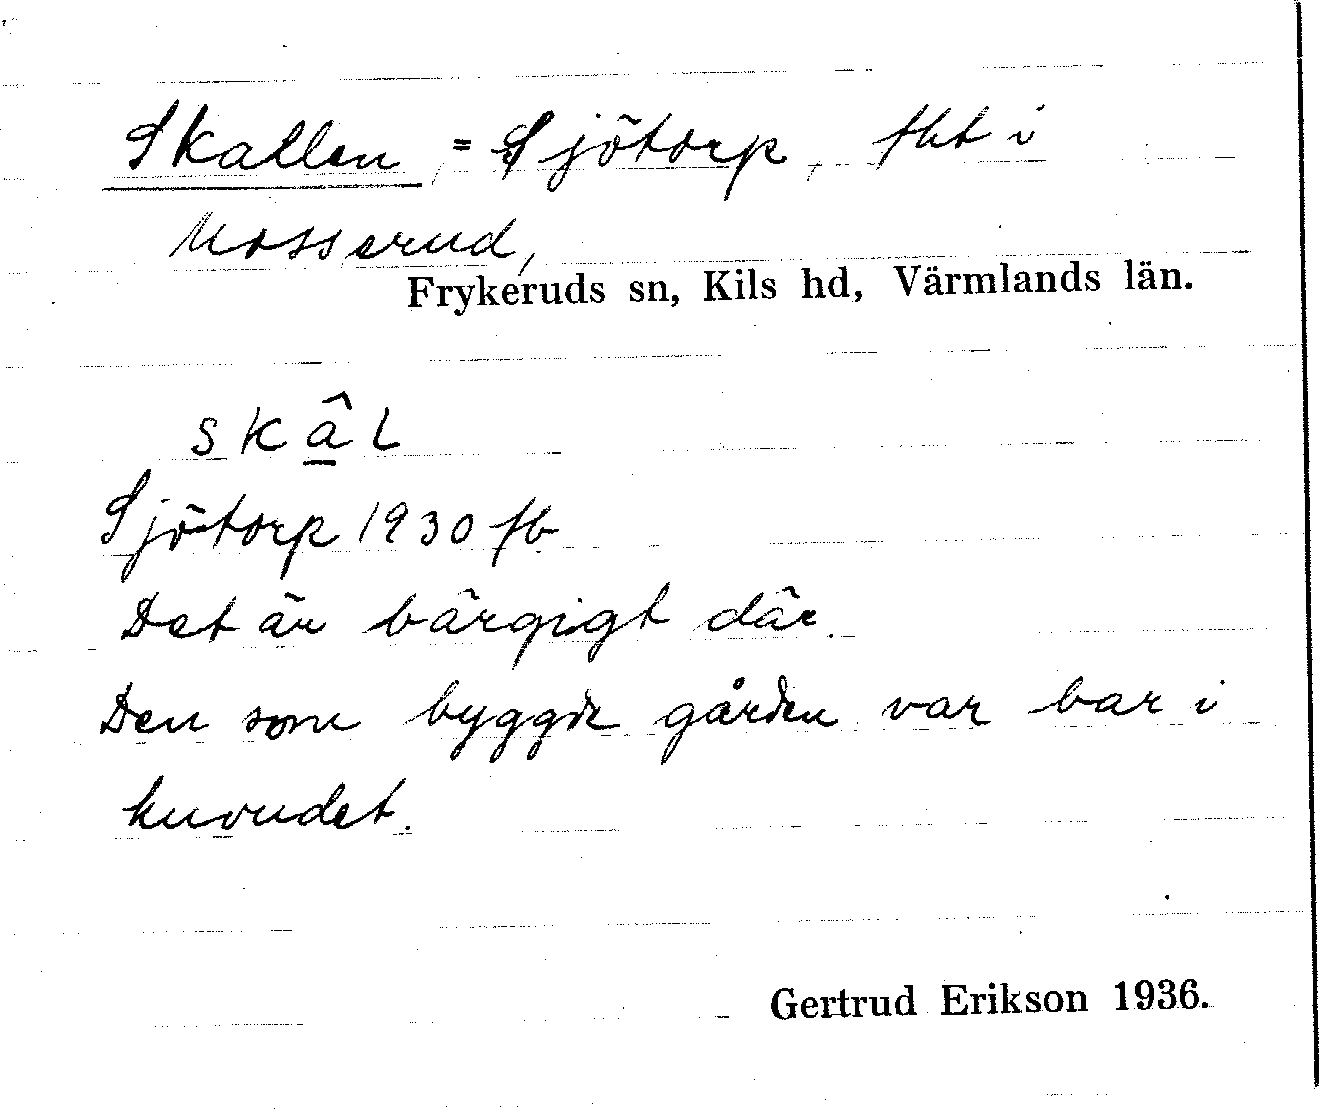 Skallen, = Sjötorp, fht i
Mosserud,
Frykeruds sn, Kils hd, Värmlands län.
skâ̱l
Sjötorp 1930 fb
Det är bärgigt där.
Den som byggde gården var bar i
huvudet.
Gertrud Erikson 1936.